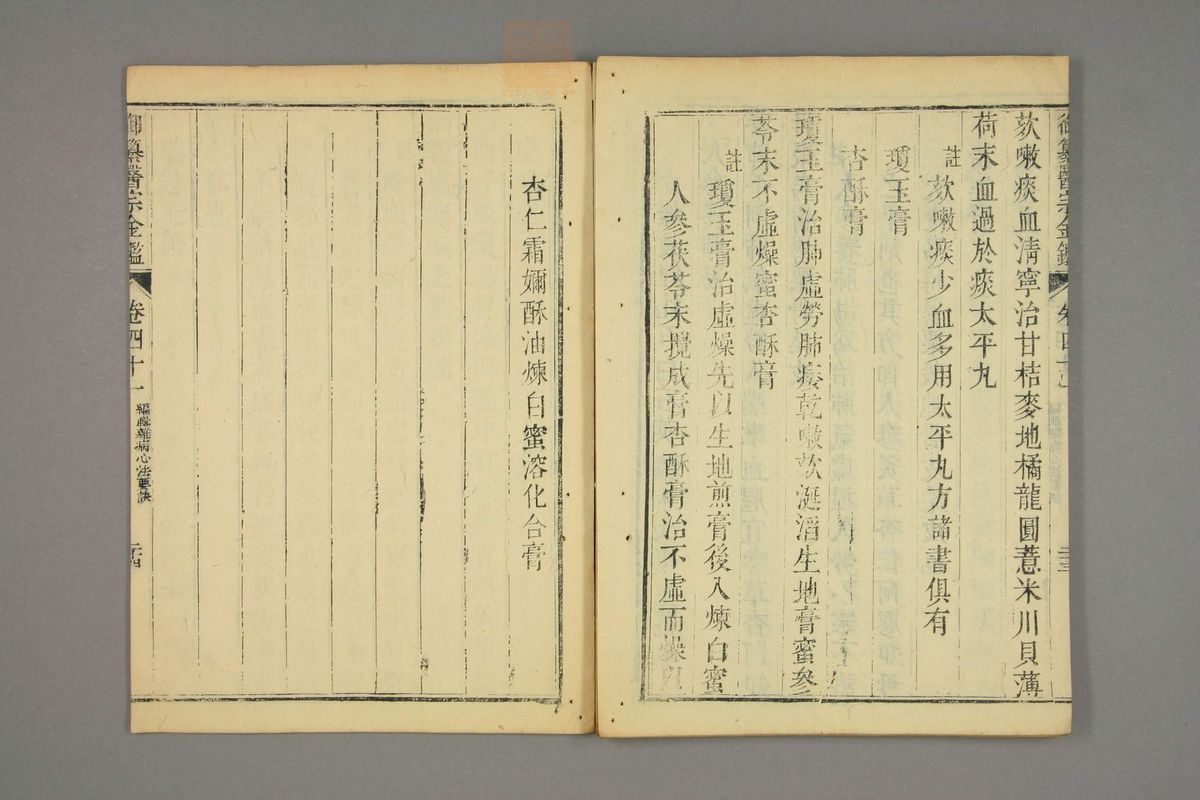 御纂醫宗金鑑 卷四十一
二十三
欬嗽痰血清寧治甘桔麥地橘龍圓薏米川貝薄
荷末血過於痰太平丸
註欬嗽痰少血多用太平丸方諸書俱有
瓊玉膏
杏酥膏
瓊玉膏治肺虛勞肺痿乾嗽欬涎滔生地膏蜜參
苓末不虛燥蜜杏酥膏
註瓊玉膏治虛燥先以生地煎膏後入煉白蜜
人參茯苓末攪成膏杏酥膏治不虛而燥以
杏仁霜嬭酥油煉白蜜溶化合膏
御纂醫宗金鑑 卷四十一 編輯雜病心法要訣